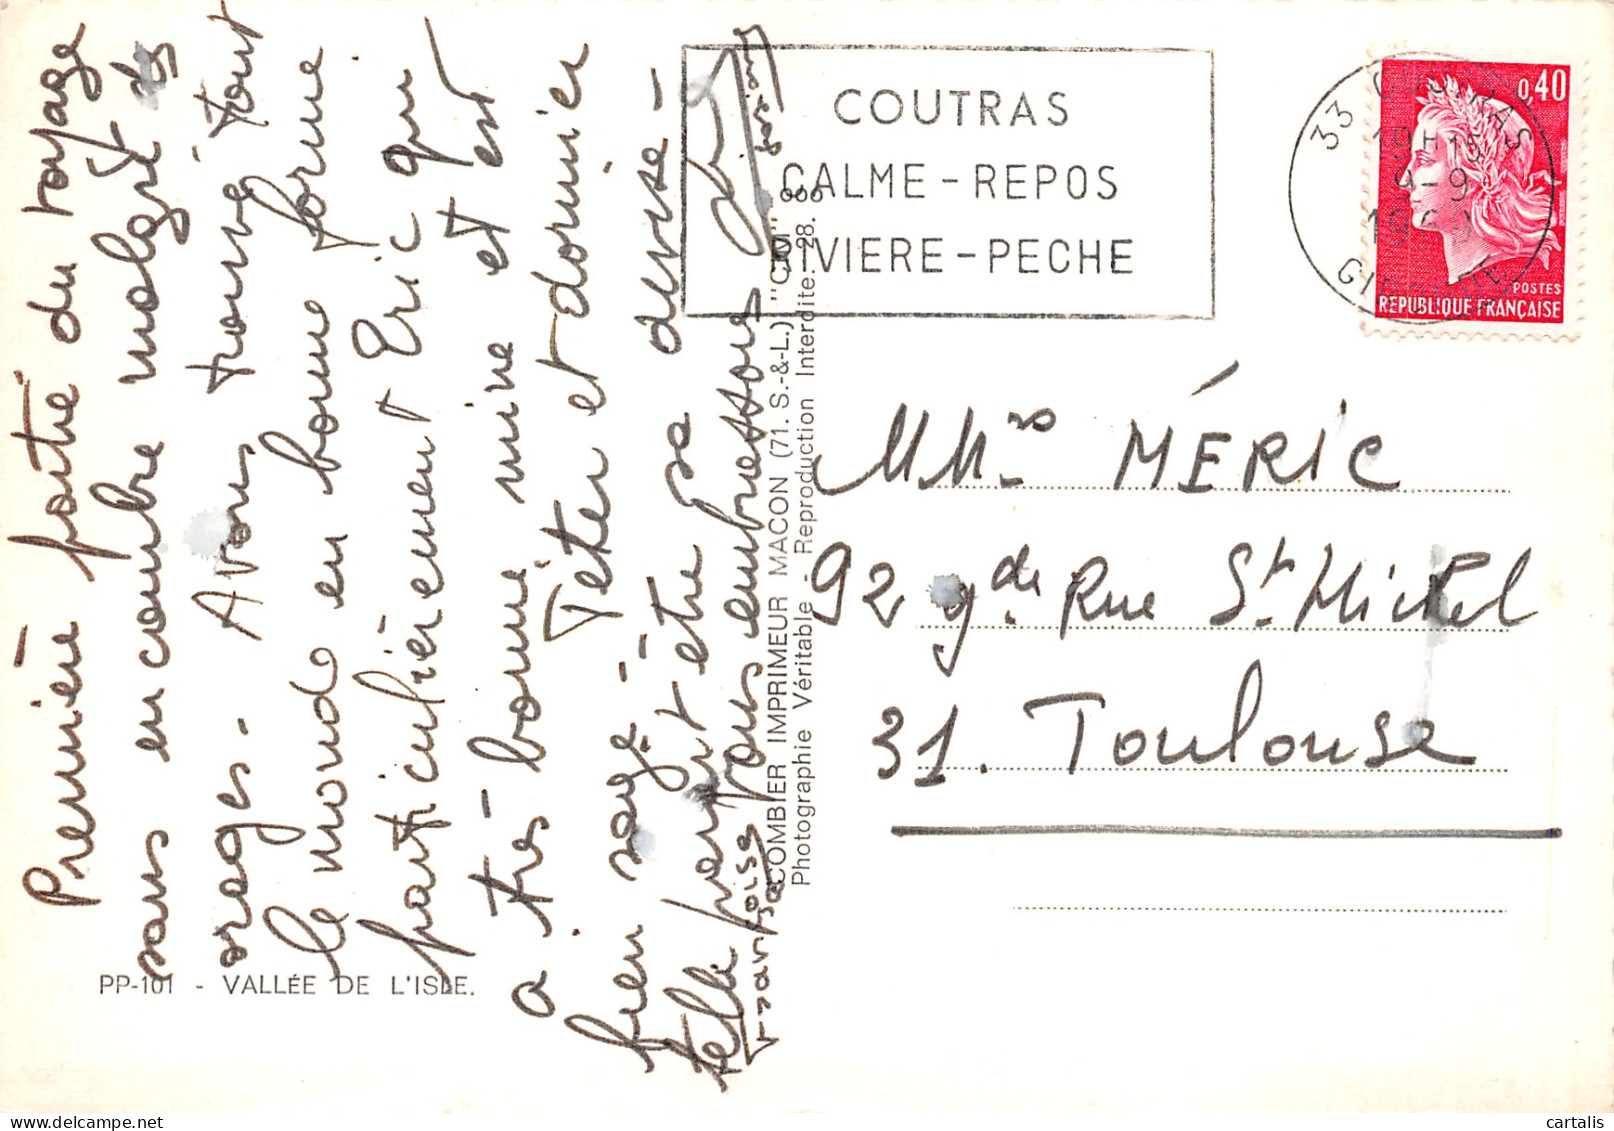 Première partie du voyage
sans encombre malgré des
orages. Avons trouvé tout
le monde en bonne forme
particulièrement Eric qui
a très bonne mine et est
bien sage. Têter et dormir
telle parait être sa devise -
vous embrassons
Françoise
PP-101 - VALLÉE DE L'ISLE.
COMBIER IMPRIMEUR MACON (71. S.-&-L.) "CIM"
Photographie Véritable - Reproduction Interdite. 28.
COUTRAS
CALME - REPOS
RIVIERE - PECHE
33 COUTRAS
19H15
9-9
GIRONDE
0,40
POSTES
REPUBLIQUE FRANÇAISE
MMrs MÉRIC
92 gde Rue St Michel
31. Toulouse
delcampe.net
cartalis